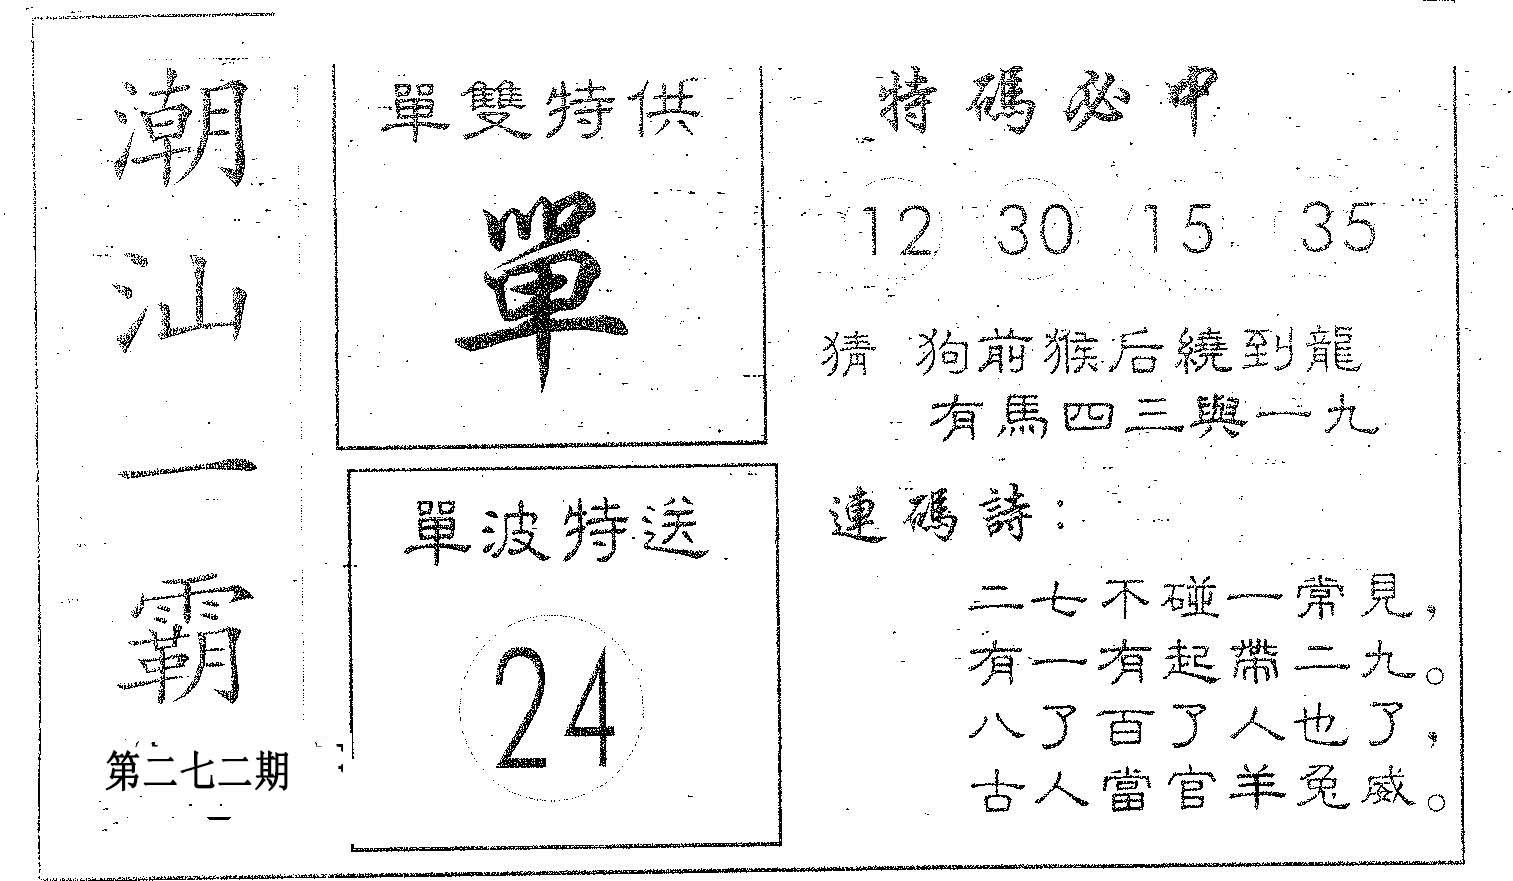 潮汕一霸
第二七二期
單雙特供
單
單波特送
24
特碼必中
12 30 15 35
猜 狗前猴后繞到龍
有馬四三與一九
連碼詩：
二七不碰一常見，
有一有起帶二九。
八了百了人也了，
古人當官羊兔威。